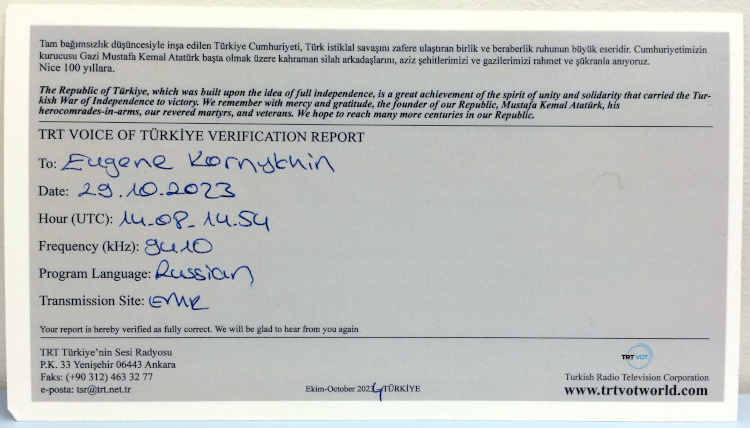 Tam bağımsızlık düşüncesiyle inşa edilen Türkiye Cumhuriyeti, Türk istiklal savaşını zafere ulaştıran birlik ve beraberlik ruhunun büyük eseridir. Cumhuriyetimizin
kurucusu Gazi Mustafa Kemal Atatürk başta olmak üzere kahraman silah arkadaşlarını, aziz şehitlerimizi ve gazilerimizi rahmet ve şükranla anıyoruz.
Nice 100 yıllara.
The Republic of Türkiye, which was built upon the idea of full independence, is a great achievement of the spirit of unity and solidarity that carried the Tur-
kish War of Independence to victory. We remember with mercy and gratitude, the founder of our Republic, Mustafa Kemal Atatürk, his
herocomrades-in-arms, our revered martyrs, and veterans. We hope to reach many more centuries in our Republic.
TRT VOICE OF TÜRKİYE VERIFICATION REPORT
To: Eugene Kornykhin
Date: 29.10.2023
Hour (UTC): 14.08_14.54
Frequency (kHz): 9410
Program Language: Russian
Transmission Site: EMR
Your report is hereby verified as fully correct. We will be glad to hear from you again
TRT Türkiye'nin Sesi Radyosu
P.K. 33 Yenişehir 06443 Ankara
Faks: (+90 312) 463 32 77
e-posta: tsr@trt.net.tr
Ekim-October 2023 TÜRKİYE
TRT VOT
Turkish Radio Television Corporation
www.trtvotworld.com